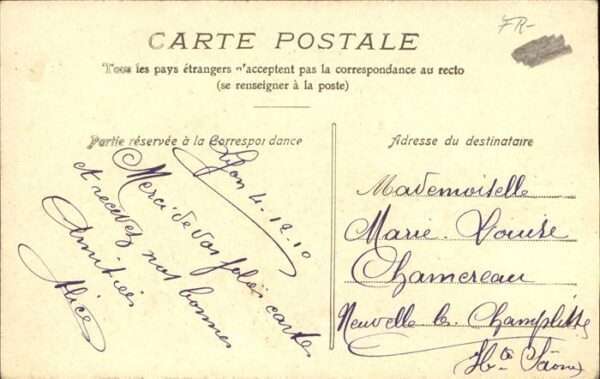 FR-
CARTE POSTALE
Tous les pays étrangers n'acceptent pas la correspondance au recto
(se renseigner à la poste)
Partie réservée à la Correspondance
Lyon 4.12.10
Merci de vos jolies cartes
et recevez nos bonnes
Amitiés
Alice
Adresse du destinataire
Mademoiselle
Marie Louise
Chamereau
Neuvelle les Champlitte
Hte Saône